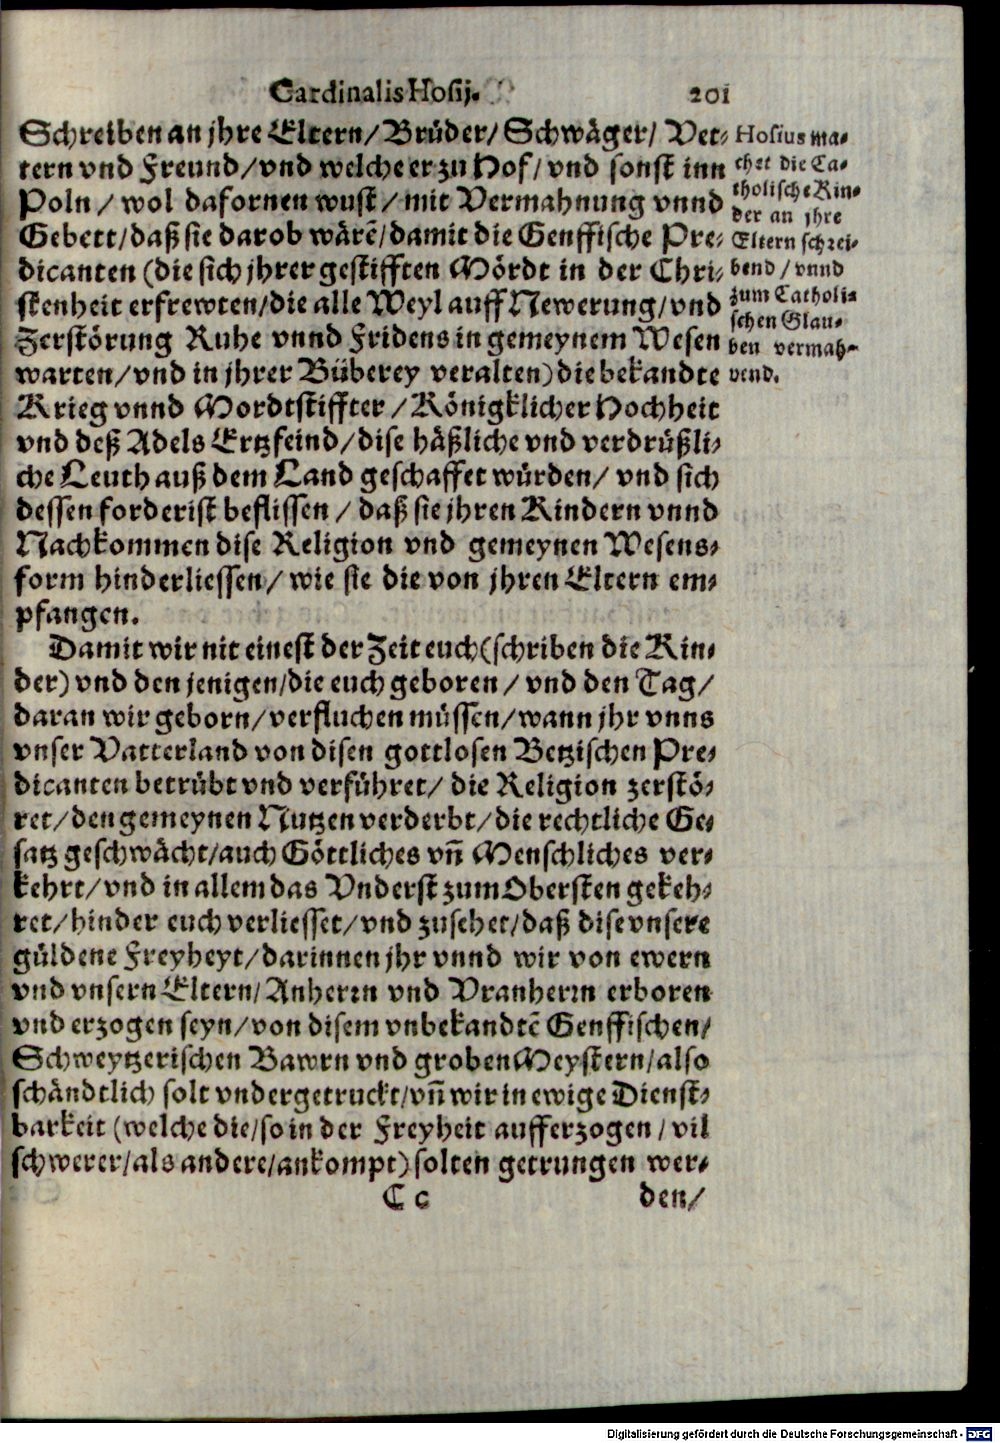 Cardinalis Hosij. 201
Schreiben an jhre Eltern/Brüder/Schwäger/ Vet⸗
tern vnd Freund/vnd welche er zu Hof/vnd sonst inn
Poln/ wol dafornen wust/ mit Vermahnung vnnd
Gebett/daß sie darob wärẽ/damit die Genffische Pre⸗
dicanten (die sich jhrer gestifften Mördt in der Chri⸗
stenheit erfrewten/die alle Weyl auff Newerung/vnd
Zerstörung Ruhe vnnd Fridens in gemeynem Wesen
warten/vnd in jhrer Büberey veralten) die bekandte
Krieg vnnd Mordtstiffter/Königklicher Hochheit
vnd deß Adels Ertzfeind/dise häßliche vnd verdrüßli⸗
che Leuth auß dem Land geschaffet würden/ vnd sich
dessen forderist beflissen/ daß sie jhren Kindern vnnd
Nachkommen dise Religion vnd gemeynen Wesens⸗
form hinderliessen/ wie sie die von jhren Eltern em⸗
pfangen.
Damit wir nit einest der Zeit euch(schriben die Kin⸗
der) vnd den jenigen/die euch geboren/ vnd den Tag/
daran wir geborn/verfluchen müssen/wann jhr vnns
vnser Vatterland von disen gottlosen Betzischen Pre⸗
dicanten betrübt vnd verführet/ die Religion zerstö⸗
ret/den gemeynen Nutzen verderbt/die rechtliche Ge⸗
satz geschwächt/auch Göttliches vñ Menschliches ver⸗
kehrt/vnd in allem das Vnderst zum Obersten gekeh⸗
ret/hinder euch verliesset/vnd zusehet/daß dise vnsere
güldene Freyheyt/darinnen jhr vnnd wir von ewern
vnd vnsern Eltern/Anherrn vnd Vranherrn erboren
vnd erzogen seyn/von disem vnbekandtẽ Genffischen/
Schweytzerischen Bawrn vnd groben Meystern/also
schändtlich solt vndergetruckt/vñ wir in ewige Dienst⸗
barkeit (welche die/so in der Freyheit aufferzogen/vil
schwerer/als andere/ankompt) solten getrungen wer⸗
Cc den/
Hosius ma⸗
chet die Ca⸗
tholische Kin⸗
der an jhre
Eltern schrei⸗
bend/vnnd
zum Catholi⸗
schen Glau⸗
ben vermah⸗
nend.
Digitalisierung gefördert durch die Deutsche Forschungsgemeinschaft - DFG